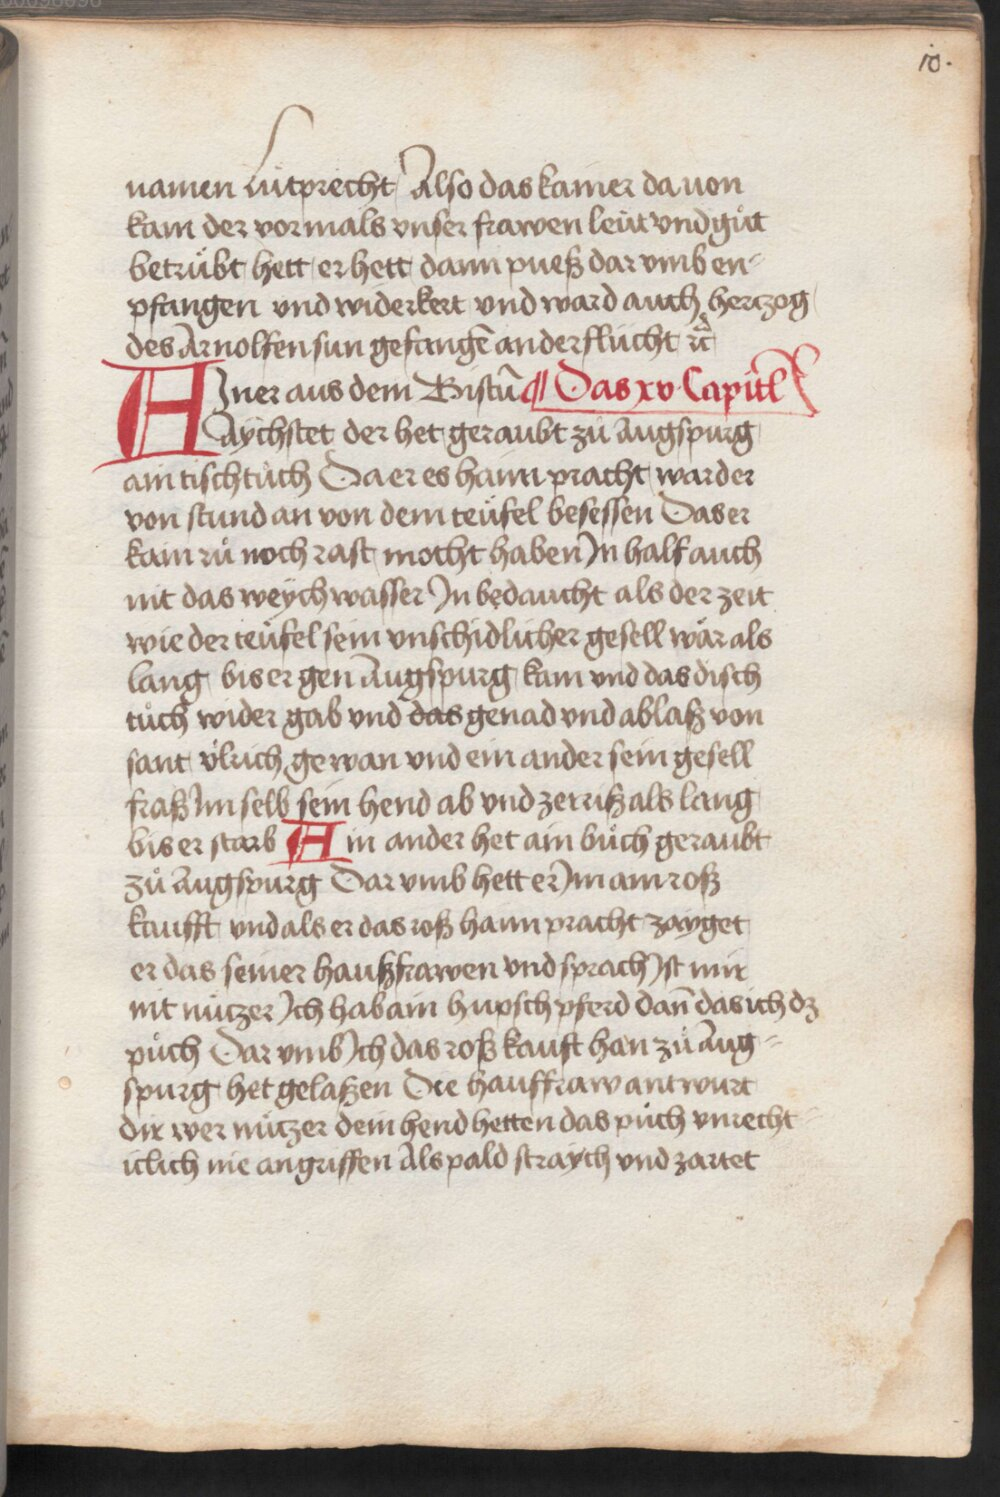 10.
namen Lutprecht Also das kainer da uon
kam der vormals vnser frawen leut vnd gůt
betrůbt hett er hett dann pueß dar vmb en-
pfangen vnd widerkert vnd ward auch hertzog
des Arnolfen sun gefangē an der flucht
AJner aus dem Bistū ¶ Das xv Capitl
Aychstet der het geraubt zů Augspurg
ain tischtůch Da er es haim pracht ward er
von stund an von dem teůfel besessen Das er
kain rů noch rast mocht haben Jn half auch
nit das weychwasser Jn bedaucht als der zeit
wie der teůfel sein vnschidlicher gesell wär als
lang bis er gen Augspurg kam vnd das disch
tůch wider gab vnd das genad vnd ablaß von
sant ůlrich gewan vnd ein ander sein gesell
fraß Jm selb sein hend ab vnd zerriß als lang
bis er starb Ain ander het ain bůch geraubt
zů Augspurg Dar vmb hett er Jm ain roß
kaufft vnd als er das roß haim pracht zayget
er das seiner haußfrawen vnd sprach Jst mir
nit nutzer Jch hab ain hupsch pferd dañ das ich dz
půch Dar vmb Jch das roß kauft han zů Aug-
spurg het gelaßen Die hauffraw antwurt
dir wer nutzer dein hend hetten das půch vnrecht
iclich nie angriffen Als pald straych vnd zartet